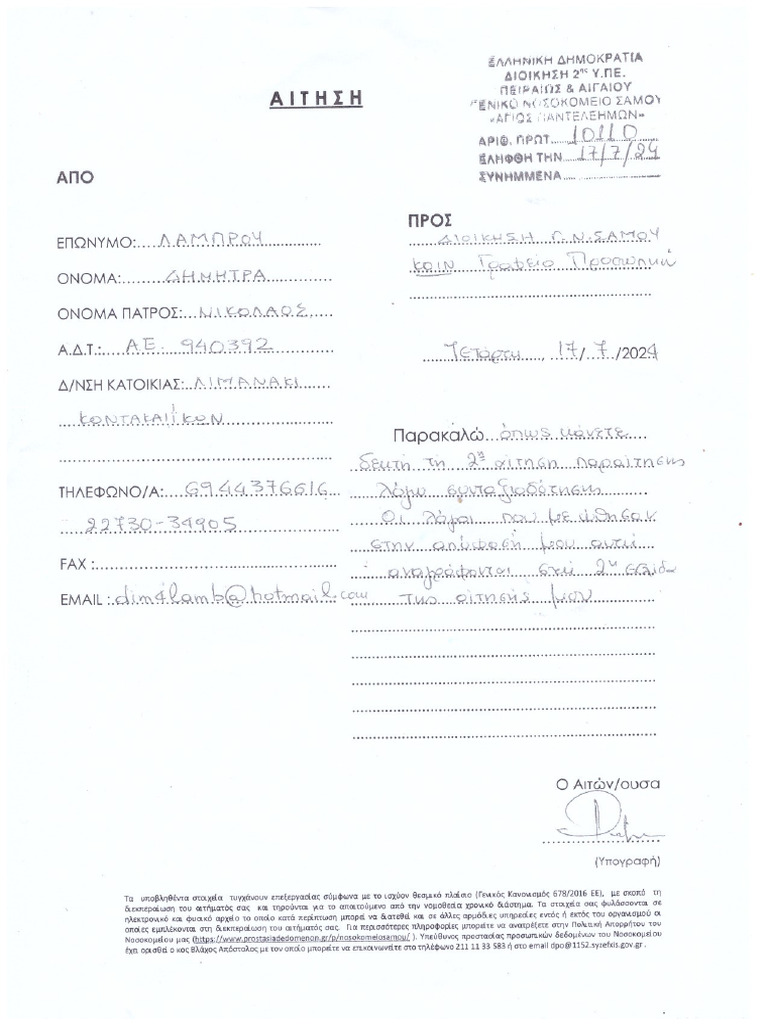 ΑΙΤΗΣΗ
ΕΛΛΗΝΙΚΗ ΔΗΜΟΚΡΑΤΙΑ
ΔΙΟΙΚΗΣΗ 2ης Υ.ΠΕ.
ΠΕΙΡΑΙΩΣ & ΑΙΓΑΙΟΥ
ΓΕΝΙΚΟ ΝΟΣΟΚΟΜΕΙΟ ΣΑΜΟΥ
«ΑΓΙΟΣ ΠΑΝΤΕΛΕΗΜΩΝ»
ΑΡΙΘ. ΠΡΩΤ. 10110
ΕΛΗΦΘΗ ΤΗΝ 17/7/24
ΣΥΝΗΜΜΕΝΑ
ΑΠΟ
ΕΠΩΝΥΜΟ: ΛΑΜΠΡΟΥ
ΟΝΟΜΑ: ΔΗΜΗΤΡΑ
ΟΝΟΜΑ ΠΑΤΡΟΣ: ΝΙΚΟΛΑΟΣ
Α.Δ.Τ.: ΑΕ 940392
Δ/ΝΣΗ ΚΑΤΟΙΚΙΑΣ: ΛΙΜΑΝΑΚΙ
ΚΟΝΤΑΚΑΙΙΚΩΝ
ΤΗΛΕΦΩΝΟ/Α: 6944376616
22730-34905
FAX :
EMAIL : dim4lamb@hotmail.com
ΠΡΟΣ
ΔΙΟΙΚΗΣΗ Γ.Ν.ΣΑΜΟΥ
ΚΟΙΝ Γραφείο Προσωπικού
Τετάρτη, 17/7/2024
Παρακαλώ όπως κάνετε
δεκτή τη 2η αίτηση παραίτησης
λόγω συνταξιοδότησης
Οι λόγοι που με ώθησαν
στην απόφασή μου αυτή
αναγράφονται στη 2η σελίδα
της αίτησής μου
Ο Αιτών/ουσα
(Υπογραφή)
Τα υποβληθέντα στοιχεία τυγχάνουν επεξεργασίας σύμφωνα με το ισχύον θεσμικό πλαίσιο (Γενικός Κανονισμός 678/2016 ΕΕ), με σκοπό τη
διεκπεραίωση του αιτήματός σας και τηρούνται για το απαιτούμενο από την νομοθεσία χρονικό διάστημα. Τα στοιχεία σας φυλάσσονται σε
ηλεκτρονικό και φυσικό αρχείο το οποίο κατά περίπτωση μπορεί να διατεθεί και σε άλλες αρμόδιες υπηρεσίες εντός ή εκτός του οργανισμού οι
οποίες εμπλέκονται στη διεκπεραίωση του αιτήματός σας. Για περισσότερες πληροφορίες μπορείτε να ανατρέξετε στην Πολιτική Απορρήτου του
Νοσοκομείου μας (https://www.prostasiadedomenon.gr/p/nosokomeiosamou/ ). Υπεύθυνος προστασίας προσωπικών δεδομένων του Νοσοκομείου
έχει ορισθεί ο κος Βλάχος Απόστολος με τον οποίο μπορείτε να επικοινωνείτε στο τηλέφωνο 211 11 33 583 ή στο email dpo@1152.syzefxis.gov.gr .